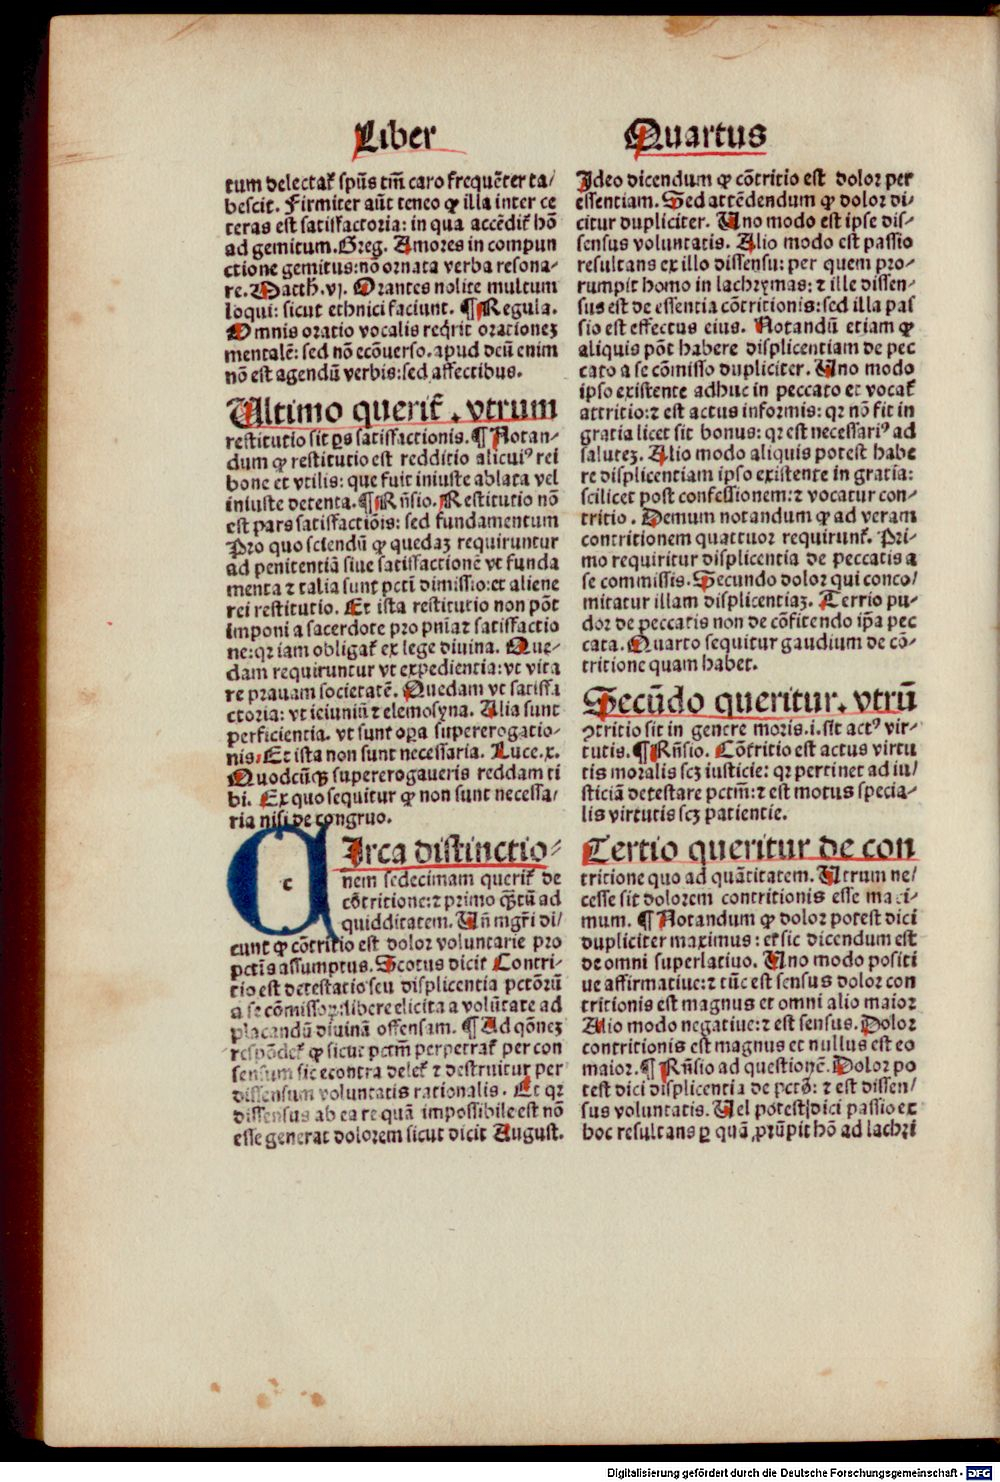 Liber Quartus
tum delectat᷒ spūs tm̄ caro frequēter ta/
bescit. Firmiter aūt teneo ꝙ illa inter ce
teras est satisfactoria: in qua accēdit᷒ hō
ad gemitum. Greg. Amores in compun
ctione gemitus: nō ornata verba resona-
re. Matth. vj. Orantes nolite multum
loqui: sicut ethnici faciunt. ¶ Regula.
Omnis oratio vocalis reqͥrit orationeꝫ
mentalē: sed nō ecōuerso. apud deū enim
nō est agendū verbis: sed affectibus.
Ultimo querit᷒. vtrum
restitutio sit ꝑs satisfactionis. ¶ Notan-
dum ꝙ restitutio est redditio alicuiꝰ rei
bone et vtilis: que fuit iniuste ablata vel
iniuste detenta. ¶ Rn̄sio. Restitutio nō
est pars satisfactiōis: sed fundamentum
Pro quo sciendū ꝙ quedaꝫ requiruntur
ad penitentiā siue satisfactionē vt funda
menta ⁊ talia sunt pctī dimissio: et aliene
rei restitutio. Et ista restitutio non pōt
imponi a sacerdote pro pn̄iaꝫ satisfactio
ne: qꝛ iam obligat᷒ ex lege diuina. Que-
dam requiruntur vt expedientia: vt vita
re prauam societatē. Quedam vt satisfa
ctoria: vt ieiuniū ⁊ elemosyna. Alia sunt
perficientia. vt sunt oꝑa supererogatio-
nis: Et ista non sunt necessaria. Luce. x.
Quodcūqꝫ supererogaueris reddam ti
bi. Ex quo sequitur ꝙ non sunt necessa/
ria nisi de congruo.
c
CIrca distinctio-
nem sedecimam querit᷒ de
cōtritione: ⁊ primo qꝫtū ad
quidditatem. Un̄ mgr̄i di/
cunt ꝙ cōtritio est dolor voluntarie pro
pctīs assumptus. Scotus dicit Contri-
tio est detestatio seu displicentia pctōrū
a se cōmissoꝝ: libere elicita a volūtate ad
placandū diuinā offensam. ¶ Ad qōneꝫ
respōdet᷒ ꝙ sicut pctm̄ perpetrat᷒ per con
sensum sic econtra delet᷒ ⁊ destruitur per
dissensum voluntatis rationalis. Et qꝛ
dissensus ab ea re quā impossibile est nō
esse generat dolorem sicut dicit August.
Ideo dicendum ꝙ cōtritio est dolor per
essentiam. Sed attēdendum ꝙ dolor di-
citur dupliciter. Uno modo est ipse dis-
sensus voluntatis. Alio modo est passio
resultans ex illo dissensu: per quem pro-
rumpit homo in lachrymas: ⁊ ille dissen-
sus est de essentia cōtritionis: sed illa pas
sio est effectus eius. Notandū etiam ꝙ
aliquis pōt habere displicentiam de pec
cato a se cōmisso dupliciter. Uno modo
ipso existente adhuc in peccato et vocat᷒
attritio: ⁊ est actus informis: qꝛ nō fit in
gratia licet sit bonus: qꝛ est necessariꝰ ad
saluteꝫ. Alio modo aliquis potest habe
re displicentiam ipso existente in gratia:
scilicet post confessionem: ⁊ vocatur con-
tritio. Demum notandum ꝙ ad veram
contritionem quattuor requirunt᷒. Pri-
mo requiritur displicentia de peccatis a
se commissis. Secundo dolor qui conco/
mitatur illam displicentiaꝫ. Tertio pu-
dor de peccatis non de cōfitendo ip̄a pec
cata. Quarto sequitur gaudium de cō-
tritione quam habet.
Secūdo queritur. vtrū
ↄtritio sit in genere moris. i. sit actꝰ vir-
tutis. ¶ Rn̄sio. Cōtritio est actus virtu
tis moralis scꝫ iusticie: qꝛ pertinet ad iu/
sticiā detestare pctm̄: ⁊ est motus specia-
lis virtutis scꝫ patientie.
Tertio queritur de con
tritione quo ad quātitatem. Utrum ne/
cesse sit dolorem contritionis esse maxi-
mum. ¶ Notandum ꝙ dolor potest dici
dupliciter maximus: et sic dicendum est
de omni superlatiuo. Uno modo positi
ue affirmatiue: ⁊ tūc est sensus dolor con
tritionis est magnus et omni alio maior
Alio modo negatiue: ⁊ est sensus. Dolor
contritionis est magnus et nullus est eo
maior. ¶ Rn̄sio ad questionē. Dolor po
test dici displicentia de pctō: ⁊ est dissen/
sus voluntatis. Uel potest dici passio ex
hoc resultans ꝑ quā ꝓrūpit hō ad lachri
Digitalisierung gefördert durch die Deutsche Forschungsgemeinschaft - DFG